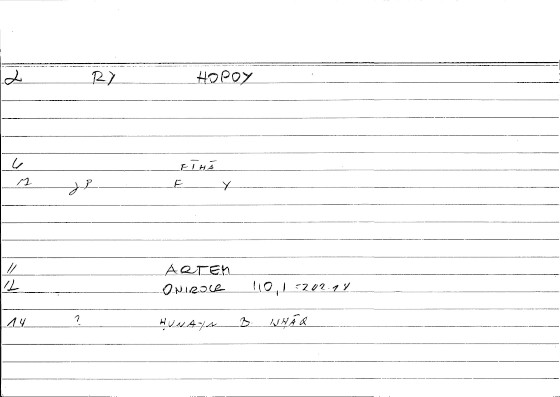 2 RY HOPOY
6 FĪHĀ
12 F Y
11 ARTEM
12 ONIROCR 110,1 = 202.14
14 ? ḤUNAYN B